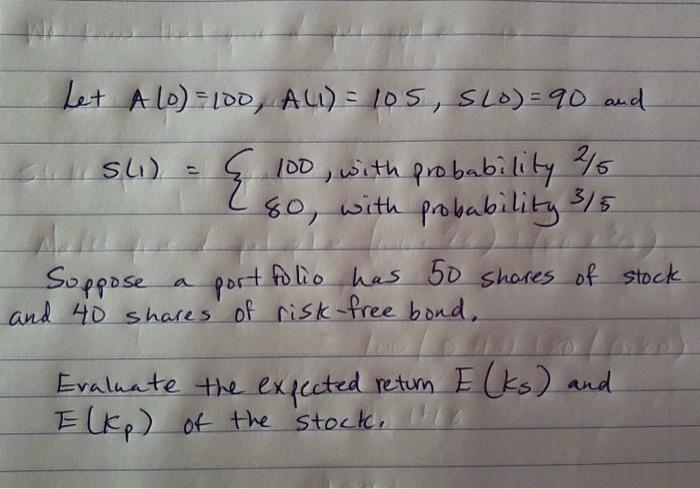 Let A(0)=100, A(1)=105, S(0)=90 and
S(1) = { 100, with probability 2/5
80, with probability 3/5
Suppose a portfolio has 50 shares of stock
and 40 shares of risk-free bond.
Evaluate the expected return E(Ks) and
E(Kp) of the stock.